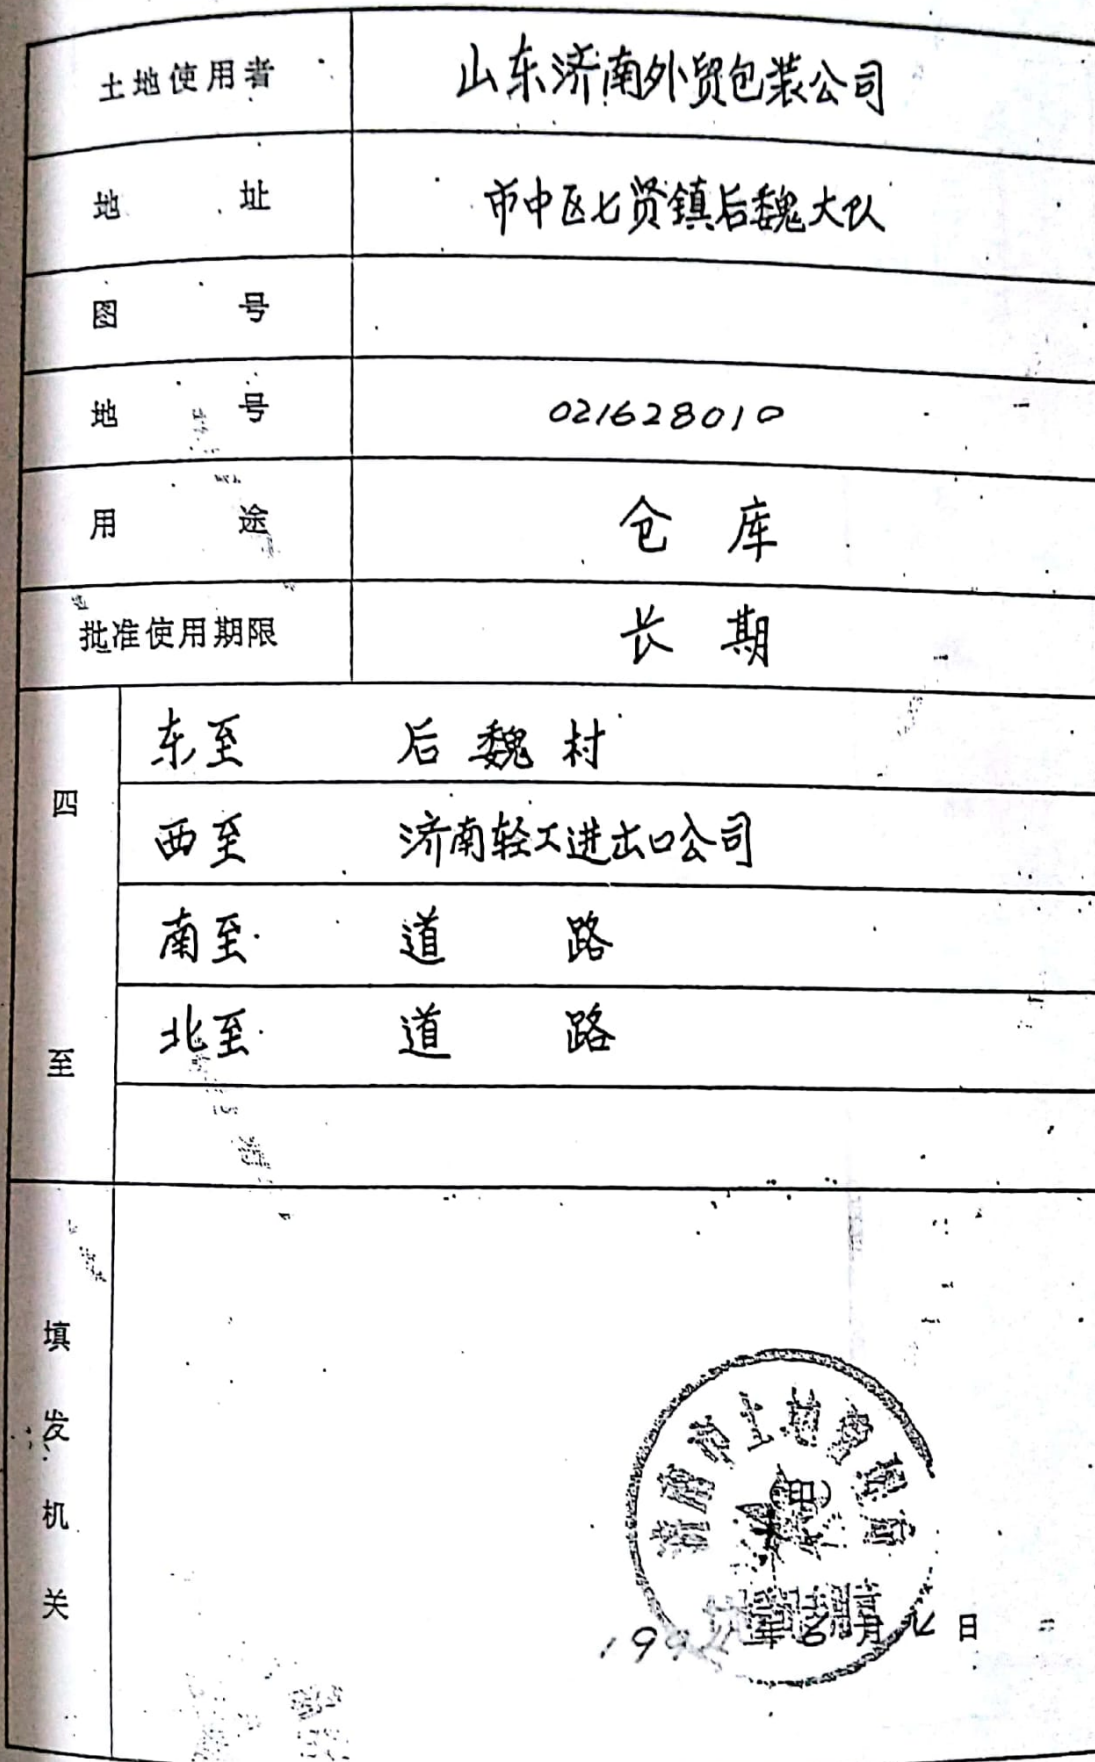 土地使用者 山东济南外贸包装公司
地址 市中区七贤镇后魏大队
图号
地号 021628010
用途 仓库
批准使用期限 长期
四至
东至 后魏村
西至 济南轻工进出口公司
南至 道路
北至 道路
填发机关
济南市土地管理局
(印)
年6月 日